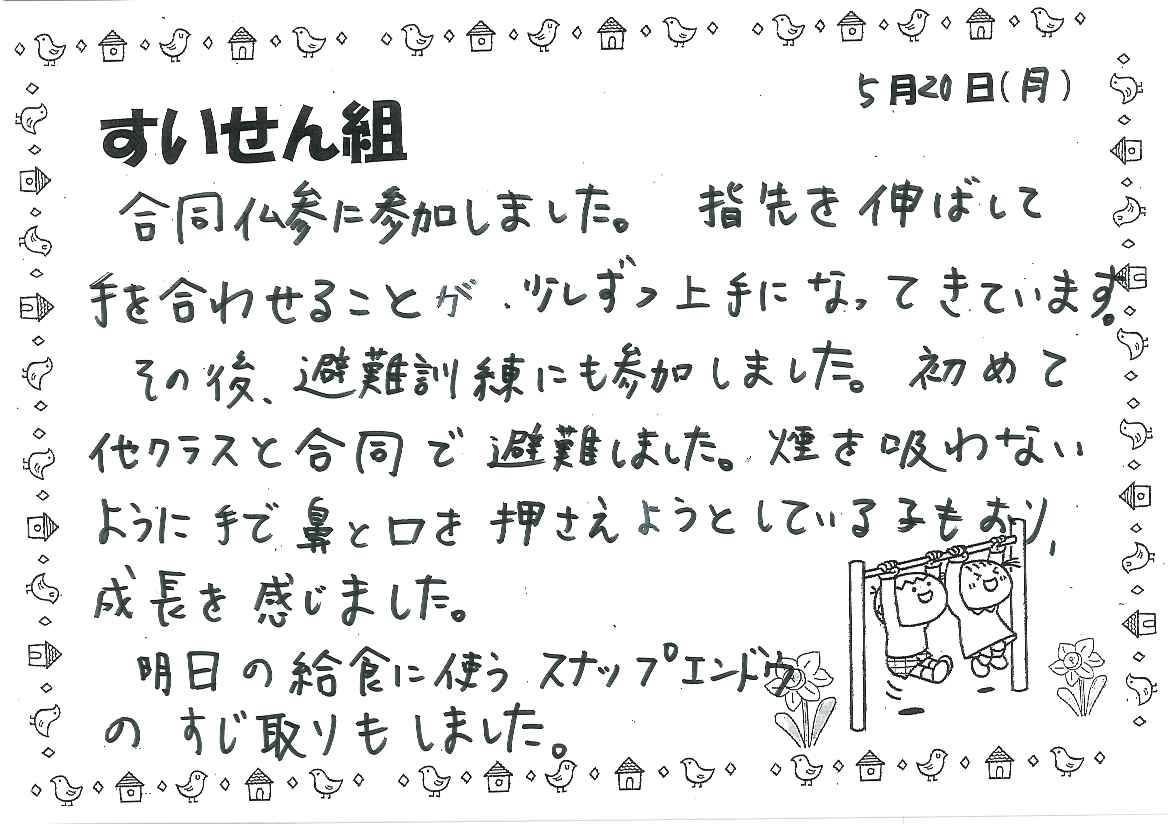 5月20日(月)
すいせん組
合同仏参に参加しました。 指先を伸ばして
手を合わせることが、少しずつ上手になってきています。
その後、避難訓練にも参加しました。 初めて
他クラスと合同で避難しました。煙を吸わない
ように手で鼻と口を押さえようとしている子もおり、
成長を感じました。
明日の給食に使うスナップエンドウ
のすじ取りもしました。